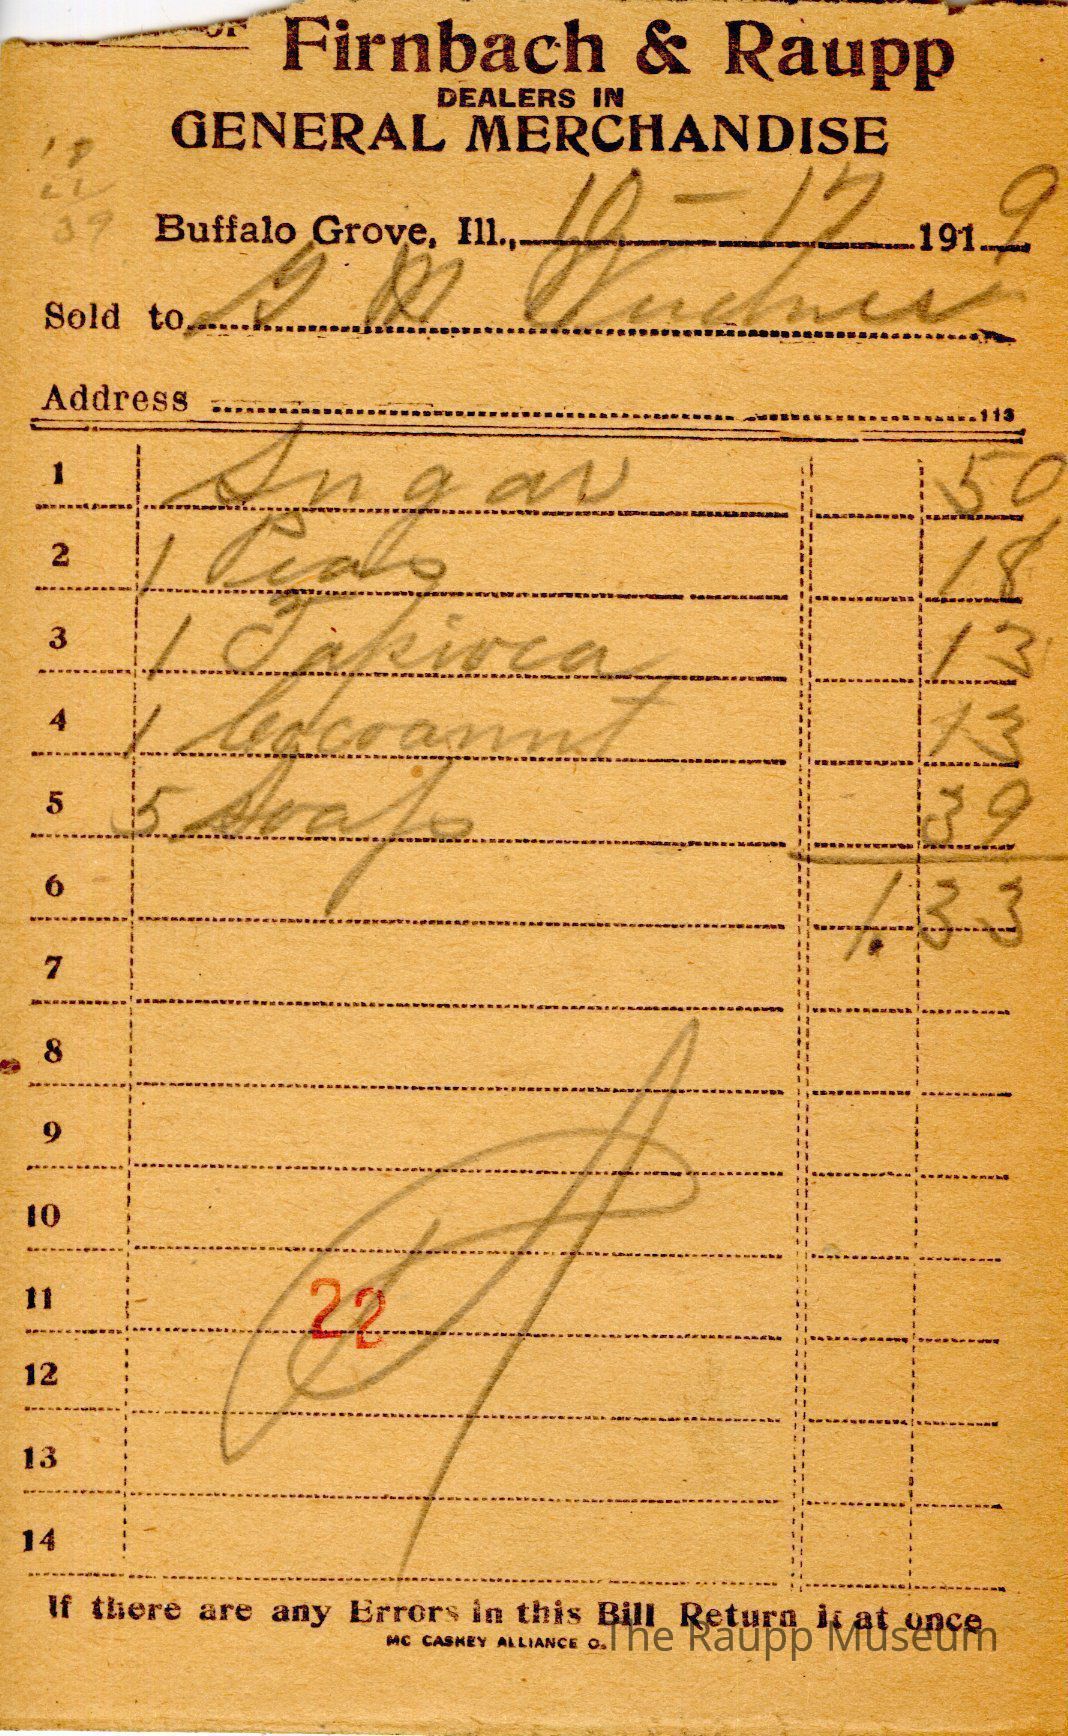 OF Firnbach & Raupp
DEALERS IN
GENERAL MERCHANDISE
18
22
39
Buffalo Grove, Ill., 10 - 17 1919
Sold to G M
Address 113
1 Sugar 50
2 1 Peas 18
3 1 Tapioca 13
4 1 Cocoanut 13
5 5 Soaps 39
6 1.33
7
8
9
10
11 22
12
13
14
If there are any Errors in this Bill Return it at once
MC CASKEY ALLIANCE O.
The Raupp Museum